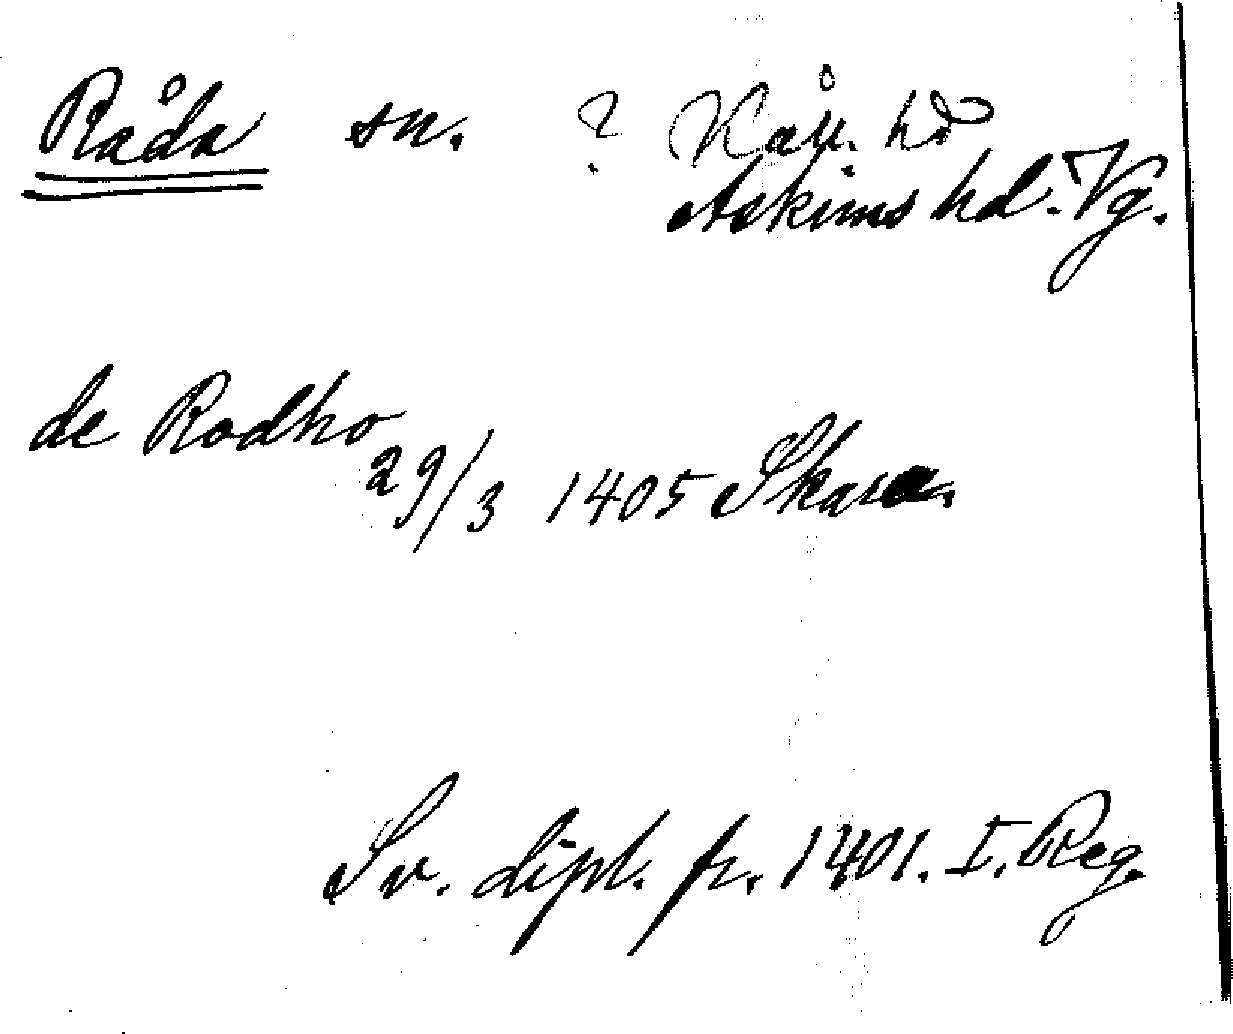 Råda sn. ? Kåll. hd
Askims hd. Vg.
de Rodho
29/3 1405 Skara.
Sv. dipl. fr. 1401. I. Reg.